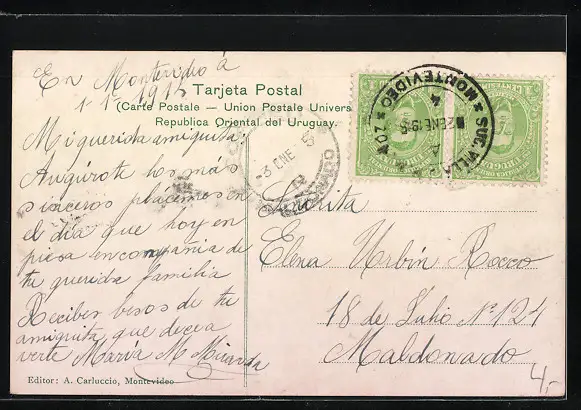 En Montevideo á
1-1-1915
Tarjeta Postal
(Carte Postale — Union Postale Univers
Republica Oriental del Uruguay.
Mi querida amiguita:
Augúrote los más
sinceros plácemes en
el dia que hoy en
piesa en compañia de
tu querida familia
Recibes besos de tu
amiguita que decea
verte María M. Miranda
Editor: A. Carluccio, Montevideo
MONTEVIDEO
SUC. VILLA
2 ENE 1915
-3 ENE
Señorita
Elena Urbín Rocco
18 de Julio Nº 124
Maldonado
4,-